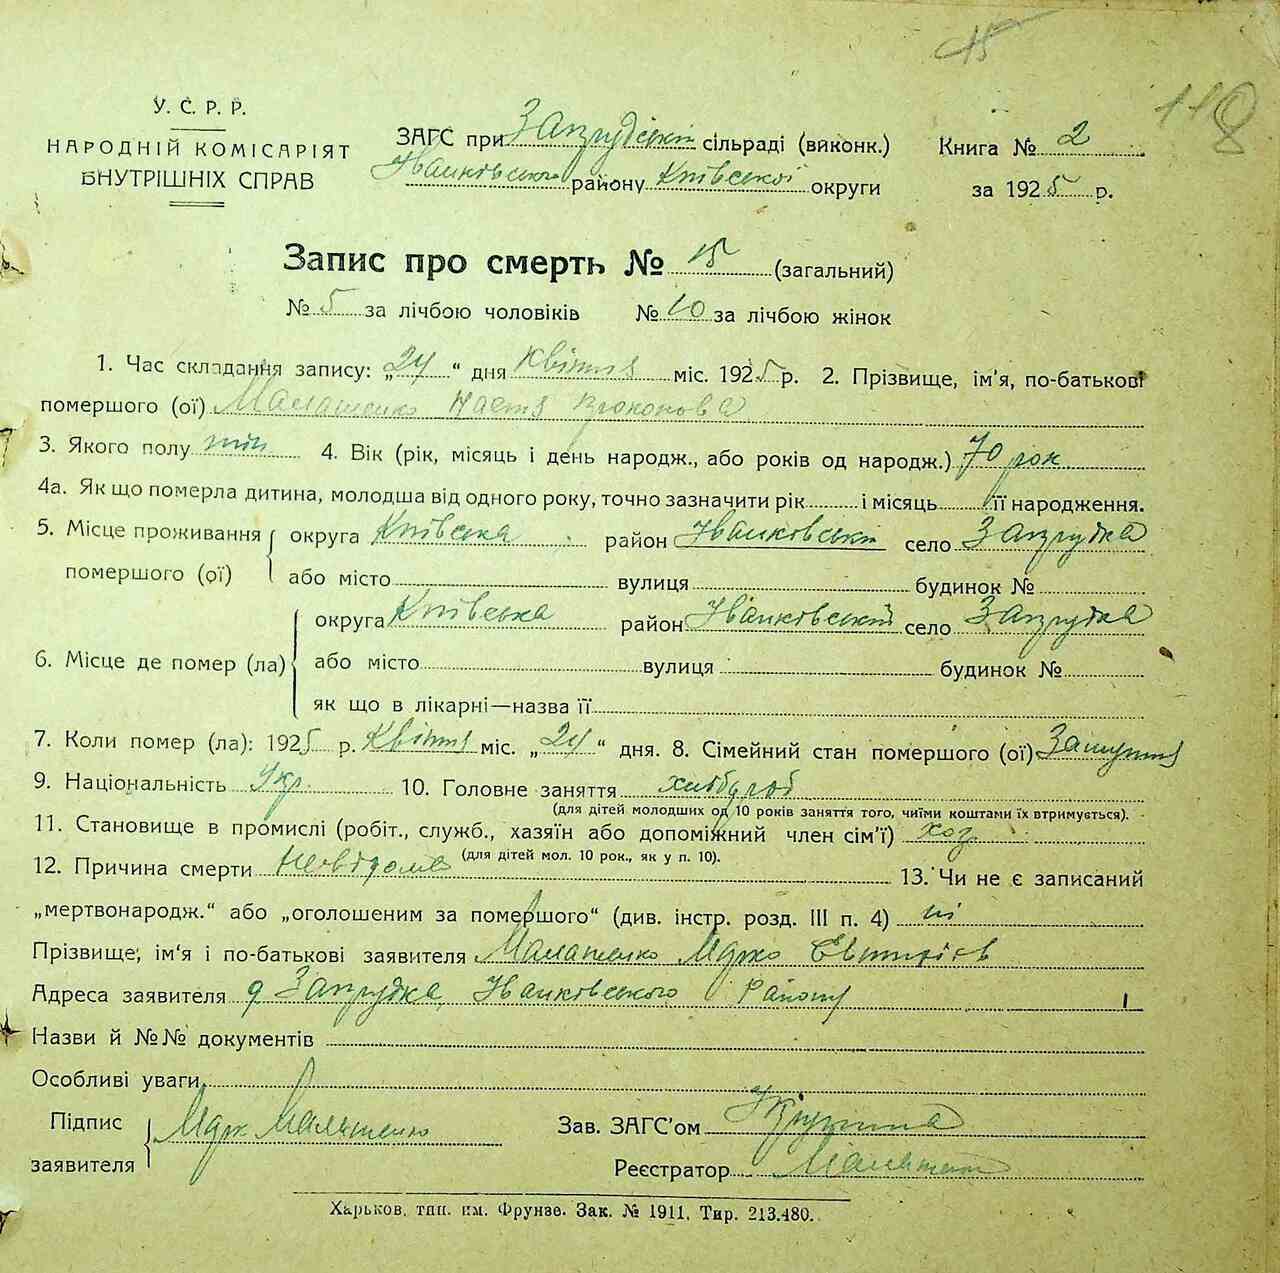 15
118
У. С. Р. Р.
НАРОДНІЙ КОМІСАРІЯТ
ВНУТРІШНІХ СПРАВ
ЗАГС при Запрудській сільраді (виконк.)
Іванковського району Київської округи
Книга № 2
за 1925 р.
Запис про смерть № 15 (загальний)
№ 5 за лічбою чоловіків № 10 за лічбою жінок
1. Час складання запису: „24“ дня Квітня міс. 1925 р. 2. Прізвище, ім'я, по-батькові
помершого (ої) Малашенко Настя
3. Якого полу жін 4. Вік (рік, місяць і день народж., або років од народж.) 70 рок
4а. Як що померла дитина, молодша від одного року, точно зазначити рік і місяць її народження.
5. Місце проживання помершого (ої) округа Київська район Іванковський село Запрудка
або місто вулиця будинок №
6. Місце де помер (ла) округа Київська район Іванковський село Запрудка
або місто вулиця будинок №
як що в лікарні—назва її
7. Коли помер (ла): 1925 р. Квітня міс. „24“ дня. 8. Сімейний стан помершого (ої) Замужня
9. Національність Укр. 10. Головне заняття хлібороб
(для дітей молодших од 10 років заняття того, чиїми коштами їх втримується).
11. Становище в промислі (робіт., служб., хазяїн або допоміжний член сім'ї) хоз
(для дітей мол. 10 рок., як у п. 10).
12. Причина смерти Невідома 13. Чи не є записаний
„мертвонародж.“ або „оголошеним за помершого“ (див. інстр. розд. III п. 4) ні
Прізвище, ім'я і по-батькові заявителя Малашенко Марко
Адреса заявителя с Запрудка Іванковського Району
Назви й №№ документів
Особливі уваги
Підпис заявителя Марк Малашенко
Зав. ЗАГС'ом
Реєстратор
Харьков, тип. им. Фрунзе. Зак. № 1911, Тир. 213.480.